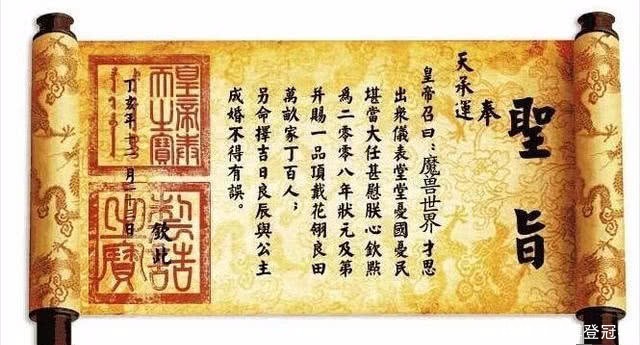 聖旨
奉
天承運
皇帝召曰:魔兽世界才思
出衆儀表堂堂憂國憂民
堪當大任甚慰朕心欽點
為二零零八年狀元及第
并賜一品頂戴花翎良田
萬畝家丁百人;
另命擇吉日良辰與公主
成婚不得有誤。
欽此
丁亥年 月 日
皇帝奉天之寶
制誥之寶
登冠